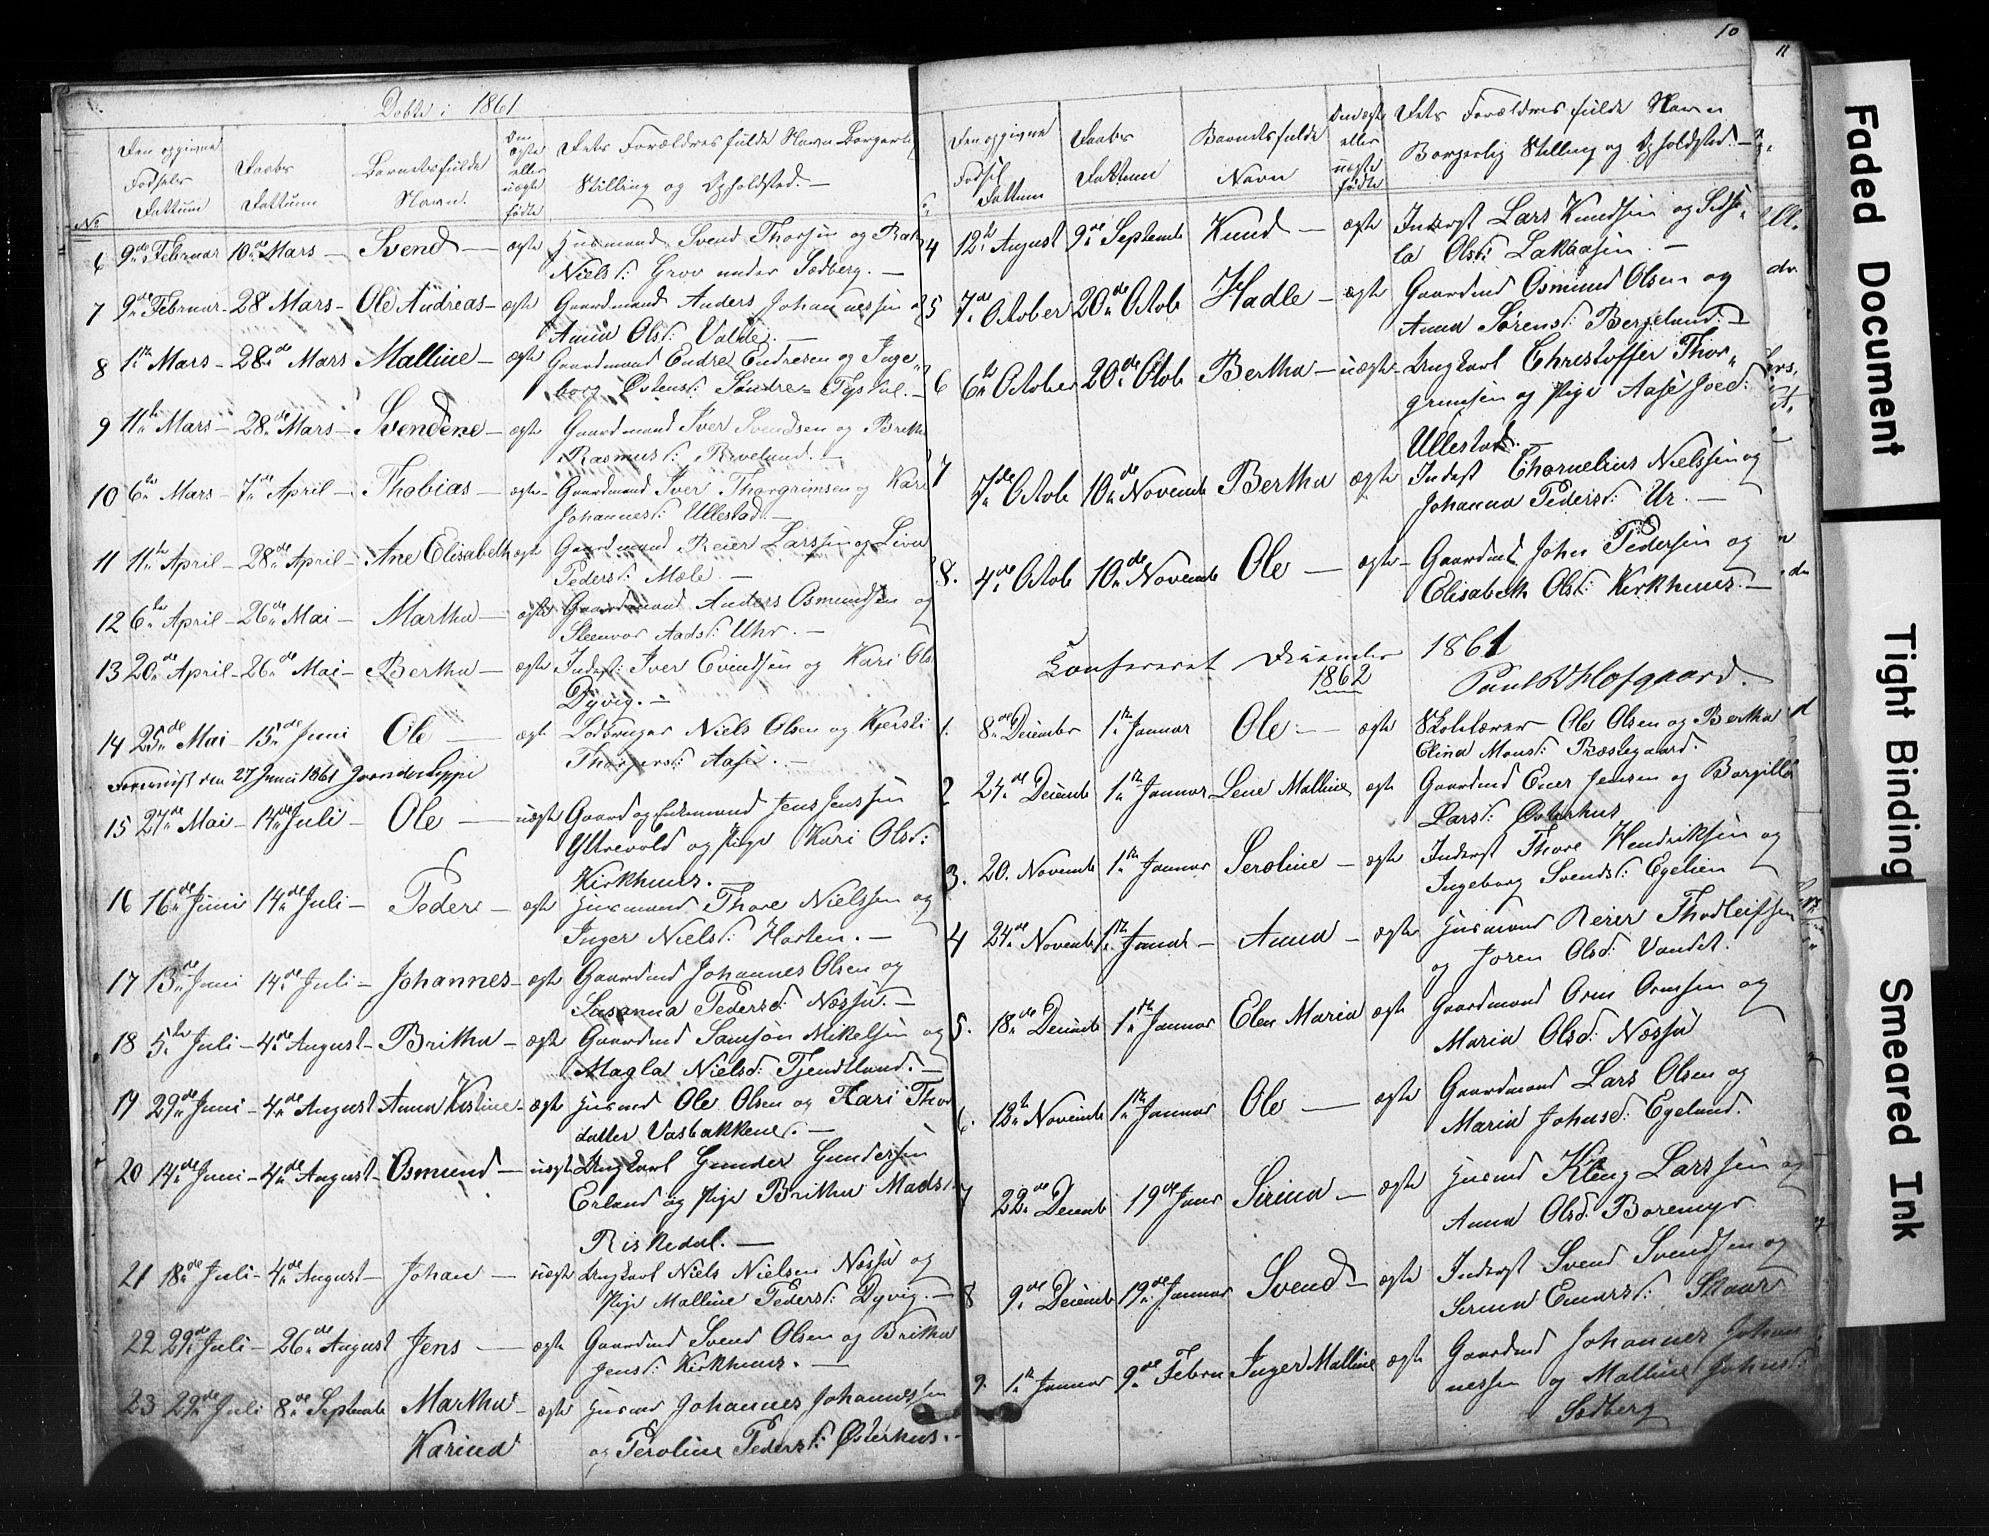 Døbte i 1861
No
Den opgivne Fødsels Dattum
Daabs Dattum
Barnets fulde Navn
Om ægte eller uægte fødte
Dets Forældres fulde Navn Borgerlig Stilling og Opholdsted. —
6 9de Februar 10de Mars — Svend — ægte Husmand Svend Thorsen og
Nielsd: Grov under Sødberg. —
7 9de Februar 28 Mars — Ole Andreas — ægte Gaardmand Anders Johannessen og
Anna Olsd: Valde. —
8 1ste Mars — 28de Mars Malline — ægte Gaardmand Endre Endresen og Inge„
borg Østensd: Søndre = Tysdal. —
9 11te Mars — 28de Mars — Svendene — ægte Gaardmand Iver Svendsen og Britha
Rasmusd: Riveland. —
10 6te Mars — 7de April — Thobias — ægte — Gaardmand Iver Thorgrimsen og Kari
Johannesd: Ullestad. —
11 11te April — 28de April — Ane Elisabeth ægte Gaardmand Reier Larssen og Liva
Pedersd: Mæle. —
12 6te April — 26de Mai — Martha — ægte Gaardmand Anders Osmundsen og
Steenvor Aadsd: Uhr. —
13 20de April — 26de Mai — Bertha — ægte Inderst: Iver Evindsen og Kari Ols
Dyvig. —
14 25de Mai — 15de Juni Ole — ægte Lodbruger Niels Olsen og Kjersti
Thorgersd: Aase. —
Forevist den 27 Juni 1861
15 27de Mai — 14de Juli — Ole — uægte Gaard og Enkemand Jens Jenssen
Ytrevold og Pige Kari Olsd:
Kirkhuus. —
16 16de Juni 14de Juli — Peder — ægte Husmand Thore Nielssen og
Inger Nielsd: Horten. —
17 13de Juni 14de Juli — Johannes — ægte Gaardmd Johannes Olsen og
Susanna Pedersd: Næssu. —
18 5te Juli — 4de August — Britha — ægte Gaardmd Samson Mikelsen og
Magla Nielsd: Tjendtland. —
19 29de Juni — 4de August Anna Kistine — ægte Husmd Ole Olsen og Kari Thor
datter Vasbakkene. —
20 14de Juni — 4de August — Osmund — uægte Ungkarl Gunder Gundersen
Erland og Pige Britha Mads
Riskedal. —
21 18de Juli — 4de August — Johan — uægte Ungkarl Niels Nielsen Næssu og
Pige Malline Pedersd: Dyvig. —
22 29de Juli — 26de August Jens — ægte Gaardmd Svend Olsen og Britha
Jensd: Kirkhuus. —
23 29de Juli 8de September Martha — ægte Husmd Johannes Johannessen
Karina og Seroline Pedersd: Østerhus. —
10
Den opgivne Fødsel Dattum
Daabs Dattum
Barnets fulde Navn
Om ægte eller uægte fødte
Dets Forældres fulde Navn Borgerlig Stilling og Opholdsted. —
4 12te August 9de Septembe Knud — ægte Inderst Lars Knudsen og Sidse„
la Olsd: Lakkasen. —
5 7de October 20de Octob Hadle — ægte Gaardmd Osmund Olsen og
Anna Sørensd: Bergeland. —
6 6te October 20de Octob Bertha — uægte — Ungkarl Christoffer Thor„
grimsen og Pige Aase Joed:
Ullestad. —
7 7de Octob 10de Novemb Bertha ægte Inderst Chornelius Nielssen og
Johanna Pedersd: Ur. —
8. 4de Octob 10de Novemb Ole — ægte — Gaardmd John Pedersen og
Elisabeth Olsd: Kirkhuus. —
Confereret December 1861
Paul V Hofgaard.
1862
1. 8de December 1ste Januar Ole — ægte Skolelærer Ole Olsen og Bertha
Elina Monsd: Præstegaard.
2 24de Decemb 1ste Januar Lene Malline ægte Gaardmd Ener Jensen og Borgilla
Larsd: Østerhus
3. 20. Novemb 1ste Januar Seroline — ægte Inderst Thore Hendriksen og
Ingeborg Svendsd: Egelien
4 24de Novemb 1ste Januar — Anna — ægte Husmand Reier Thodleifsen
og Joren Olsd: Vandet.
5. 18de Decemb 1ste Januar Elen Maria ægte Gaardmand Orm Ormsen og
Maria Olsd: Næssu
6. 13te Novemb 1ste Januar Ole — ægte Gaardmand Lars Olsen og
Maria Johnsd: Egeland.
7 22de Decemb 19de Januar Sirina — ægte Husmd Kleng Larssen og
Anna Olsd: Boremyr
8 9de Decemb 19de Januar Svend — ægte Inderst Svend Svendsen og
Serina Enarsd: Skaar
9. 1ste Januar 9de Febru Inger Malline ægte Gaardmd Johannes Johan
nessen og Malline Johnsd:
Sødberg
11
Faded Document
Tight Binding
Smeared Ink